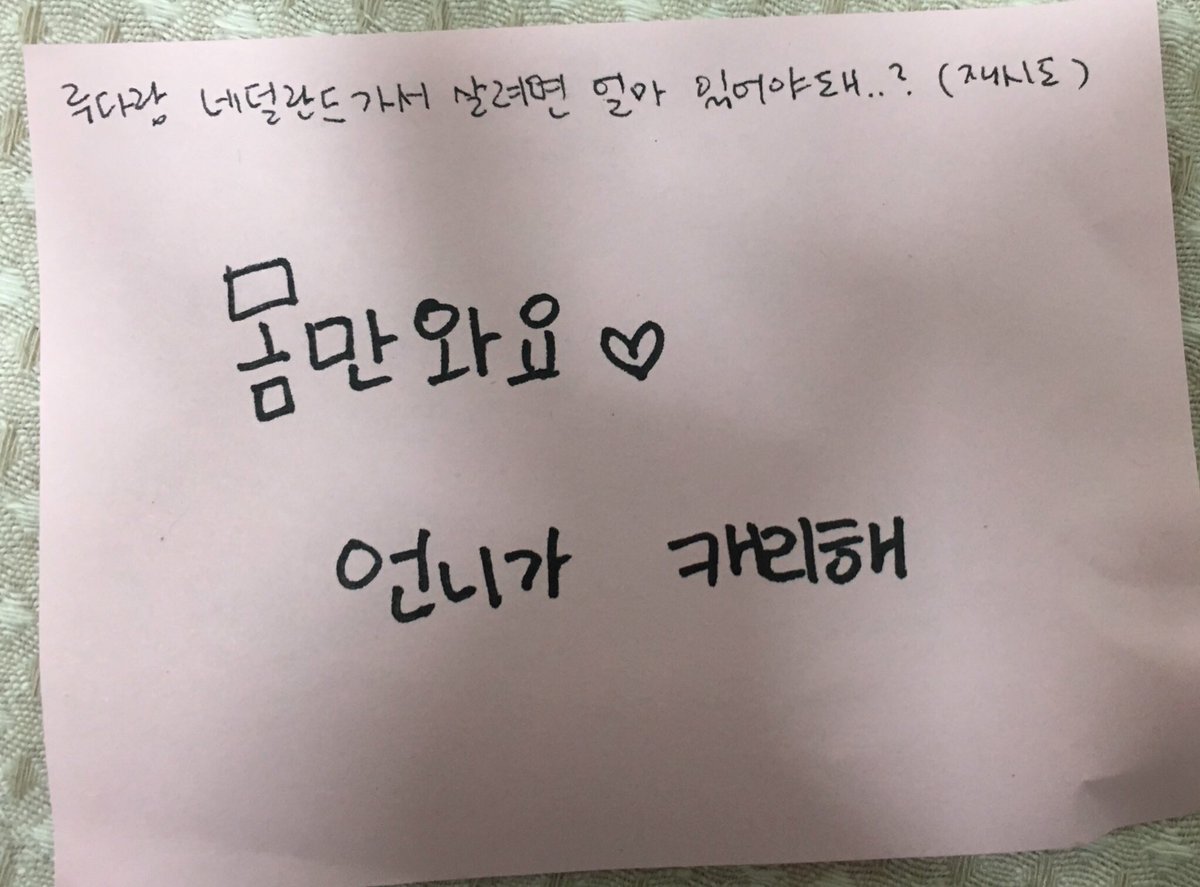 루다랑 네덜란드가서 살려면 얼마 있어야돼..? (재시도)
몸만와요♡
언니가 캐리해